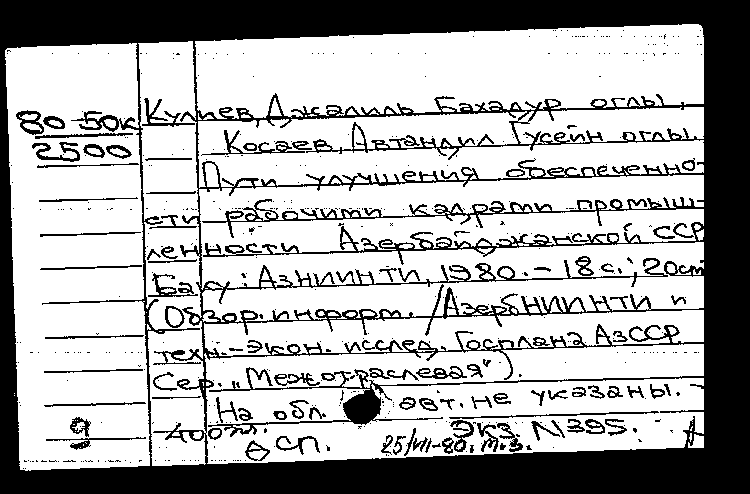 Кулиев, Джалиль Бахадур оглы,
80-50к
2500
Косаев, Автандил Гусейн оглы.
Пути улучшения обеспеченно-
сти рабочими кадрами промыш-
ленности Азербайджанской ССР
Баку: АзНИИНТИ, 1980. - 18 с.; 20 см
(Обзор. информ. / АзербНИИНТИ и
техн.-экон. исслед. Госплана АзССР
Сер. "Межотраслевая").
На обл. авт. не указаны. -
9
400
экз. N 395.
сп.
25/VII-80.